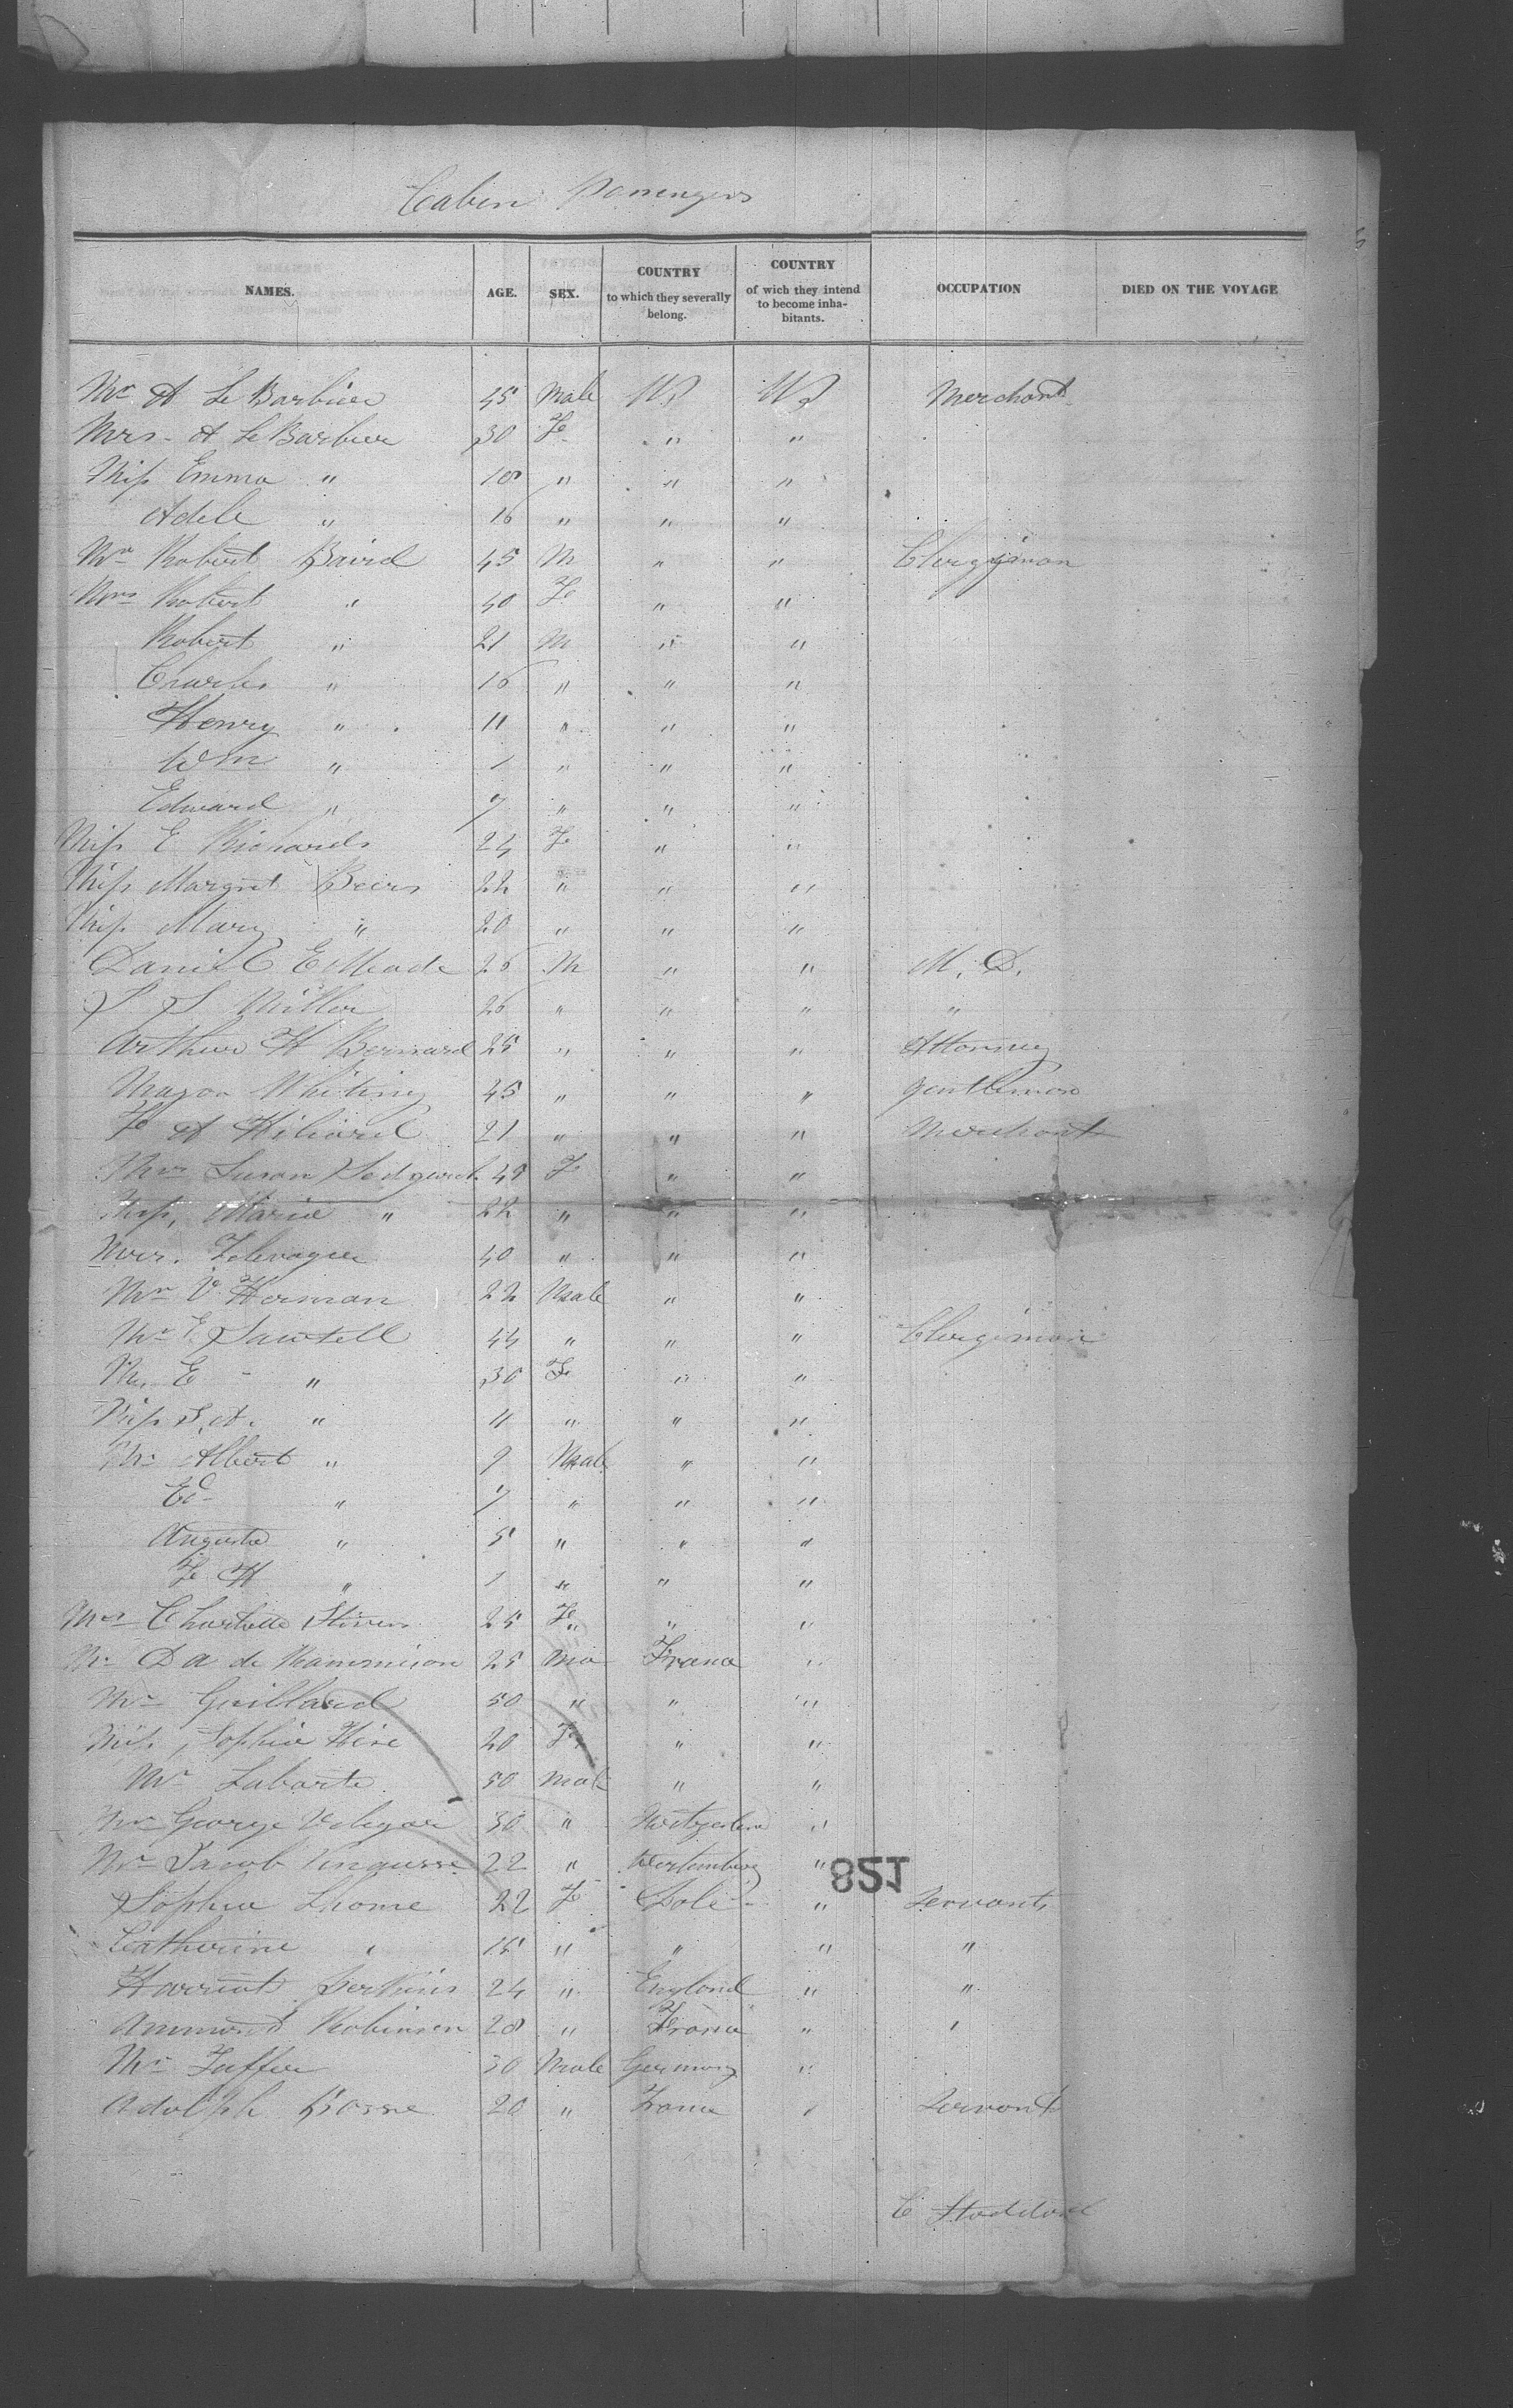 Cabin Passengers
NAMES. AGE. SEX. COUNTRY to which they severally belong. COUNTRY of wich they intend to become inha- bitants. OCCUPATION DIED ON THE VOYAGE
Mr A Le Barbier 45 Male US US Merchant
Mrs - A Le Barbier 30 Fe " "
Miss Emma " 18 " " "
Adele " 16 " " "
Mr Robert Baird 45 M " " Clergyman
Mrs Robert " 40 Fe " "
Robert " 21 M " "
Charles " 16 " " "
Henry " 11 " " "
Wm " 1 " " "
Edward " 7 " " "
Miss E Richards 24 Fe " "
Miss Margret Beers 22 " " "
Miss Mary " 20 " " "
Daniel E Meade 26 M " " M. D.
S Miller 26 " " " "
Arthur H Bernard 25 " " " Attorney
Mason Whiting 45 " " " gentleman
A Hiliard 21 " " " Merchant
Mrs Susan Sedgwick 49 F " "
Miss, Maria " 22 " " "
Mrs. 40 " " "
Mr V Herman 22 Male " "
Mr E Sawtell 44 " " " Clergiman
E - " 30 Fe " "
Miss S. A. " 11 " " "
Mr Albert " 9 Male " "
Ed " 7 " " "
Augusta " 5 " " "
Fe H " 1 " " "
Mrs Charlotte Stivers 25 Fe " "
Mr D A de 25 Ma France "
Mr Guillard 50 " " "
Miss, Sophia 20 Fe " "
Mr Labarte 50 Male " "
Mr George 30 " "
Mr Jacob 22 " Wertemberg "
821
Sophia Lhome 22 Fe Dole " Servants
Catherine " 15 " " " "
Harriet Perkins 24 " England " "
Ammond Robinson 28 " France " "
Mr 30 Male Germany "
Adolph 20 " France " Servant
C Stoddard